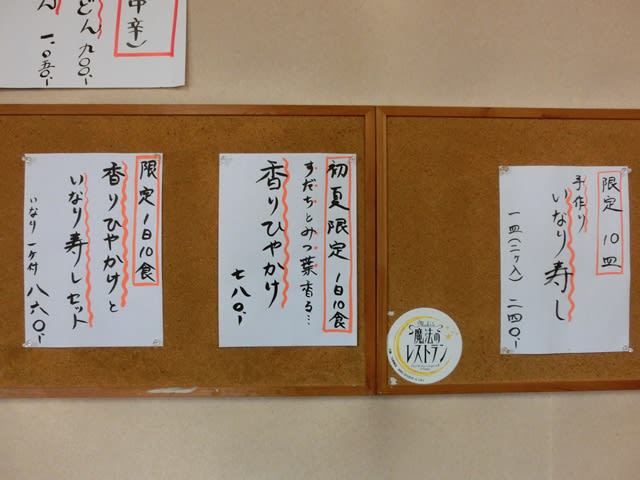 中辛）
どん 九〇〇.-
ん 一、〇五〇.-
限定 10皿
手作り
いなり寿し
一皿（二ヶ入） 二四〇.-
初夏限定 1日10食
すだちとみつ葉香る…
香りひやかけ
七八〇.-
限定1日10食
香りひやかけと
いなり寿しセット
いなり 一ヶ付 八六〇.-
魔法の
レストラン